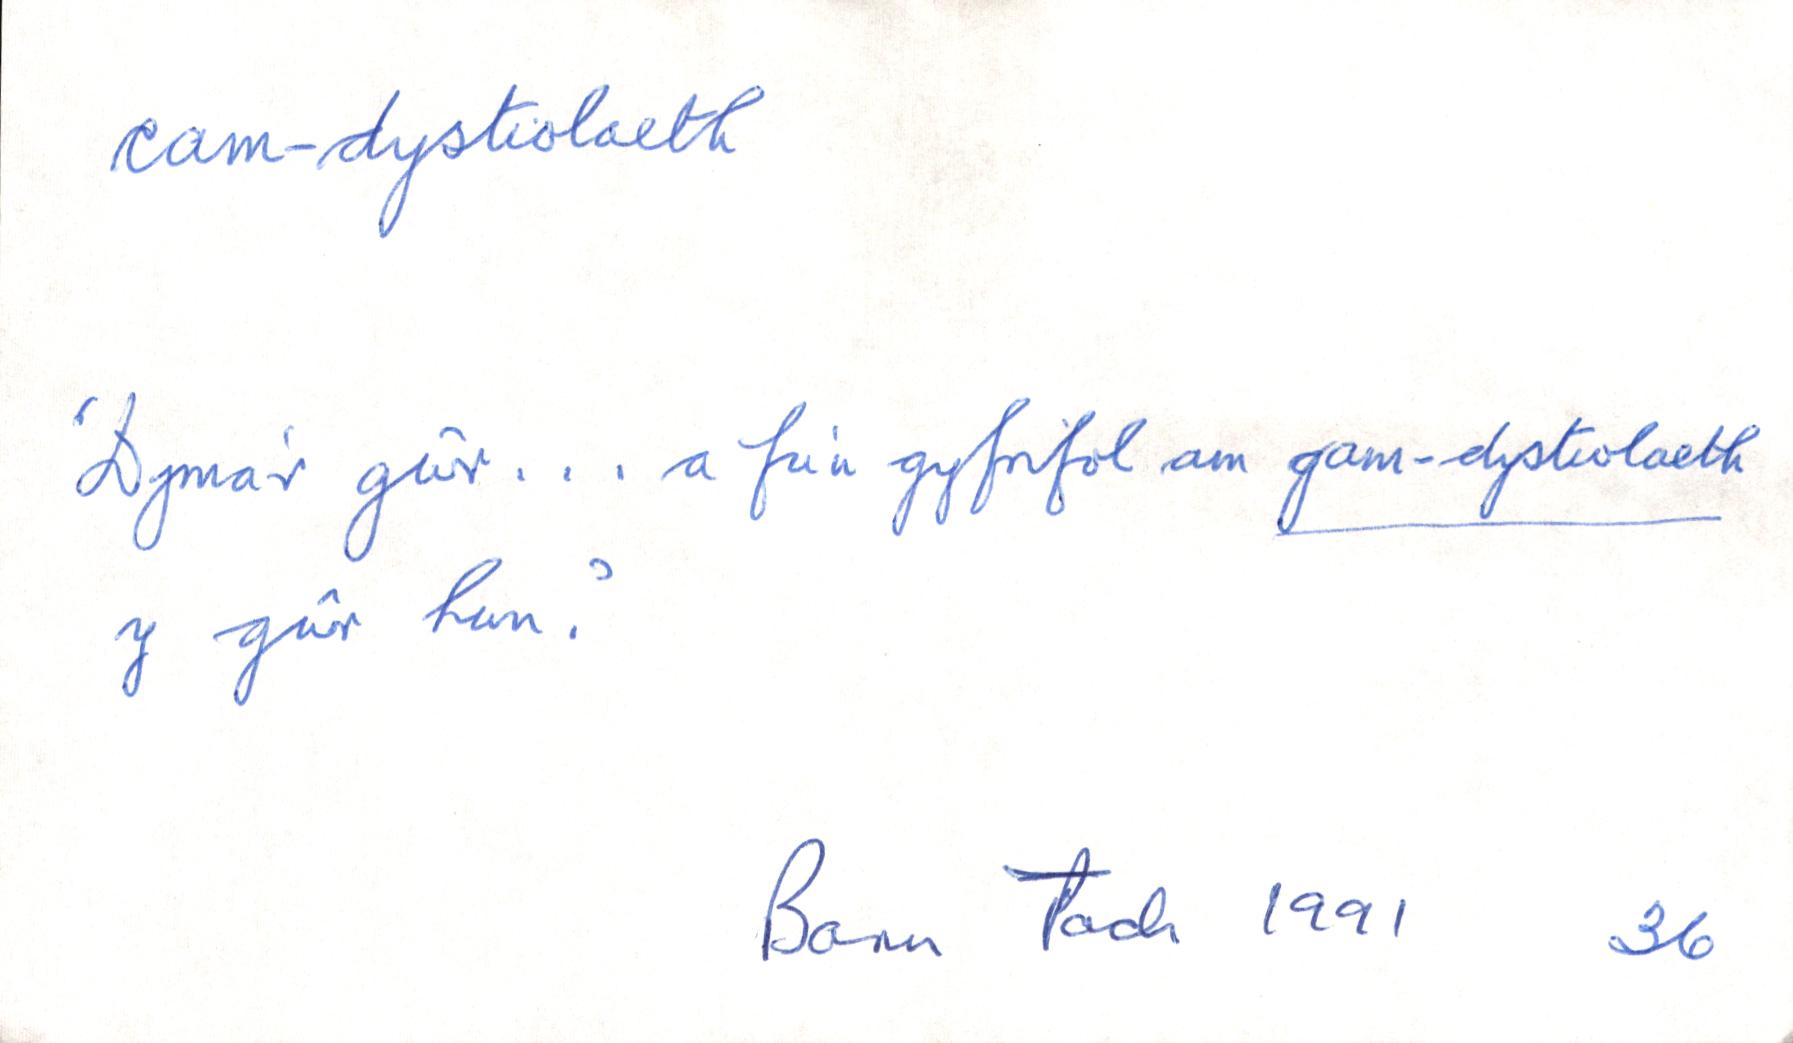 cam-dystiolaeth
'Dyma'r gŵr... a fu'n gyfrifol am gam-dystiolaeth
y gŵr hwn.'
Barn Tach 1991 36